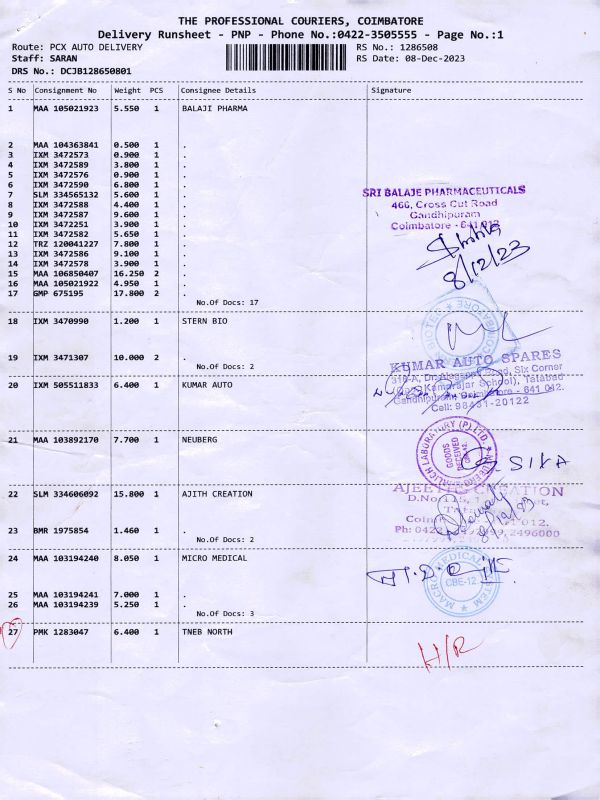 THE PROFESSIONAL COURIERS, COIMBATORE
Delivery Runsheet - PNP - Phone No.:0422-3505555 - Page No.:1
Route: PCX AUTO DELIVERY RS No.: 1286508
Staff: SARAN RS Date: 08-Dec-2023
DRS No.: DCJB128650801
S No Consignment No Weight PCS Consignee Details Signature
1 MAA 105021923 5.550 1 BALAJI PHARMA
2 MAA 104363841 0.500 1 .
3 IXM 3472573 0.900 1 .
4 IXM 3472589 3.800 1 .
5 IXM 3472576 0.900 1 .
6 IXM 3472590 6.800 1 .
7 SLM 334565132 5.600 1 .
8 IXM 3472588 4.400 1 .
9 IXM 3472587 9.600 1 .
10 IXM 3472251 3.900 1 .
11 IXM 3472582 5.650 1 .
12 TRZ 120041227 7.800 1 .
13 IXM 3472586 9.100 1 .
14 IXM 3472578 3.900 1 .
15 MAA 106850407 16.250 2 .
16 MAA 105021922 4.950 1 .
17 GMP 675195 17.800 2 .
No.Of Docs: 17
SRI BALAJE PHARMACEUTICALS
466, Cross Cut Road
Gandhipuram
Coimbatore - 641 012
8/12/23
18 IXM 3470990 1.200 1 STERN BIO
19 IXM 3471307 10.000 2 .
No.Of Docs: 2
KUMAR AUTO SPARES
Six Corner
Kamarajar School), Tatabad
Gandhipuram, Coimbatore - 641 012.
Cell: 98431-20122
20 IXM 505511833 6.400 1 KUMAR AUTO
21 MAA 103892170 7.700 1 NEUBERG
LABORATORY (P) LTD.
GOODS
RECEIVED
22 SLM 334606092 15.800 1 AJITH CREATION
23 BMR 1975854 1.460 1 .
No.Of Docs: 2
24 MAA 103194240 8.050 1 MICRO MEDICAL
MEDICAL SYSTEM
CBE-12
25 MAA 103194241 7.000 1 .
26 MAA 103194239 5.250 1 .
No.Of Docs: 3
27 PMK 1283047 6.400 1 TNEB NORTH
H/R